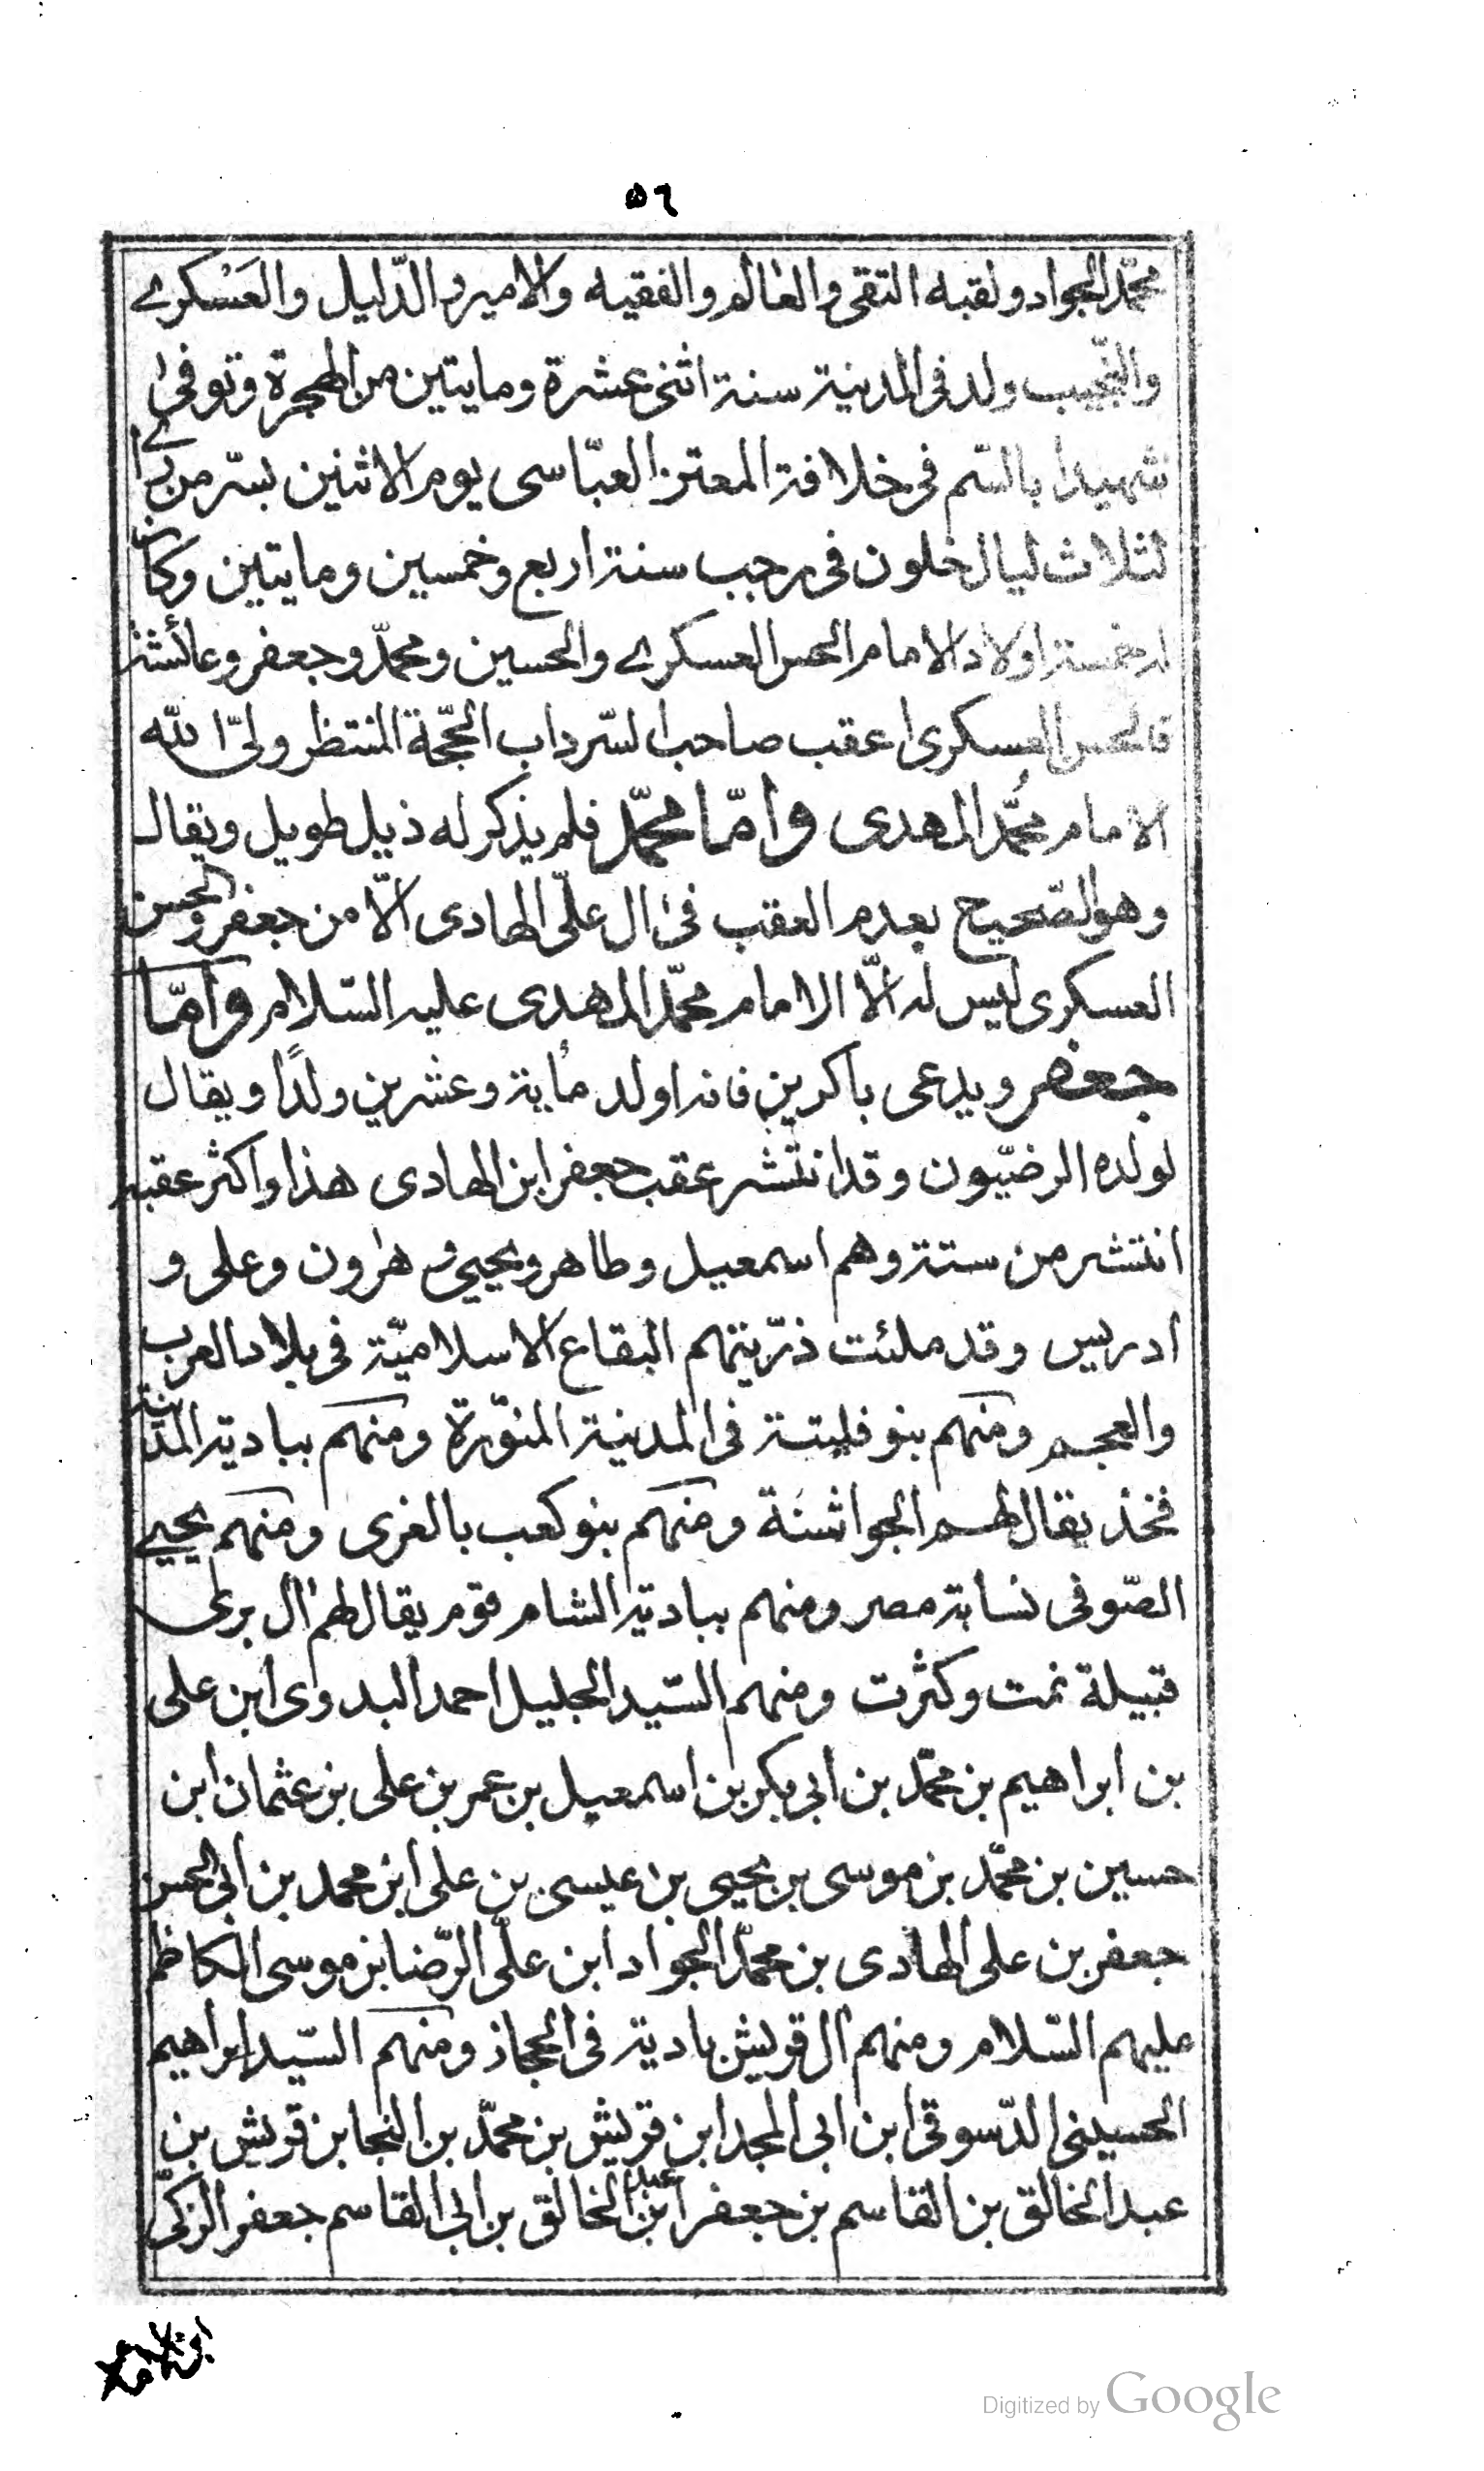 ٥٦
محمّد الجواد ولقبه التقى والعالم والفقيه والامير والدّليل والعَسْكرى
والنّجيب ولد فى المدينة سنة اثنى عشرة ومايتين من الهجرة وتوفى
شهيدا بالسّم فى خلافة المعتز العبّاسى يوم الاثنين بسّر من رأى
لثلاث ليال خلون فى رجب سنة اربع وخمسين ومايتين وكان
له خمسة اولاد الامام الحسن العسكرى والحسين ومحمّد وجعفر وعائشة
فالحسن العسكرى اعقب صاحب السّرداب الحجّة المنتظر ولىّ الله
الامام محمّد المهدى وامّا محمّد فلم يذكر له ذيل طويل ويقال
وهو الصّحيح بعدم العقب فى ال علىّ الهادى الّا من جعفر والحسن
العسكرى ليس له الّا الامام محمّد المهدى عليه السّلام وامّا
جعفر ويدعى باكرين فانه اولد ماية وعشرين ولدًا ويقال
لولده الرضيّون وقد انتشر عقب جعفر ابن الهادى هذا واكثر عقبه
انتشر من ستة وهم اسمعيل وطاهر ويحيى وهٰرون وعلى و
ادريس وقد ملئت ذرّيتهم البقاع الاسلاميّة فى بلاد العرب
والعجم ومنهم بنو فليتة فى المدينة المنوّرة ومنهم ببادية المدينة
فخذ يقال لهم الجواشنَة ومنهم بنو كعب بالغرى ومنهم يحيى
الصّوفى نسابة مصر ومنهم ببادية الشام قوم يقال لهم ال برى
قبيلة نمت وكثرت ومنهم السّيد الجليل احمد البدوى ابن على
بن ابراهيم بن محمّد بن ابى بكر بن اسمعيل بن عمر بن على بن عثمان ابن
حسين بن محمّد بن موسى بن يحيى بن عيسى بن على ابن محمد بن ابى الحسن
جعفر بن على الهادى بن محمّد الجواد ابن علىّ الرّضا بن موسى الكاظم
عليهم السّلام ومنهم ال قريش بادية فى الحجاز ومنهم السّيد ابراهيم
الحسينى الدّسوقى ابن ابى المجد ابن قريش بن محمّد بن النجا بن قريش بن
عبد الخالق بن القاسم بن جعفر ابن عبد الخالق بن ابى القاسم جعفر الزكىّ
Digitized by Google